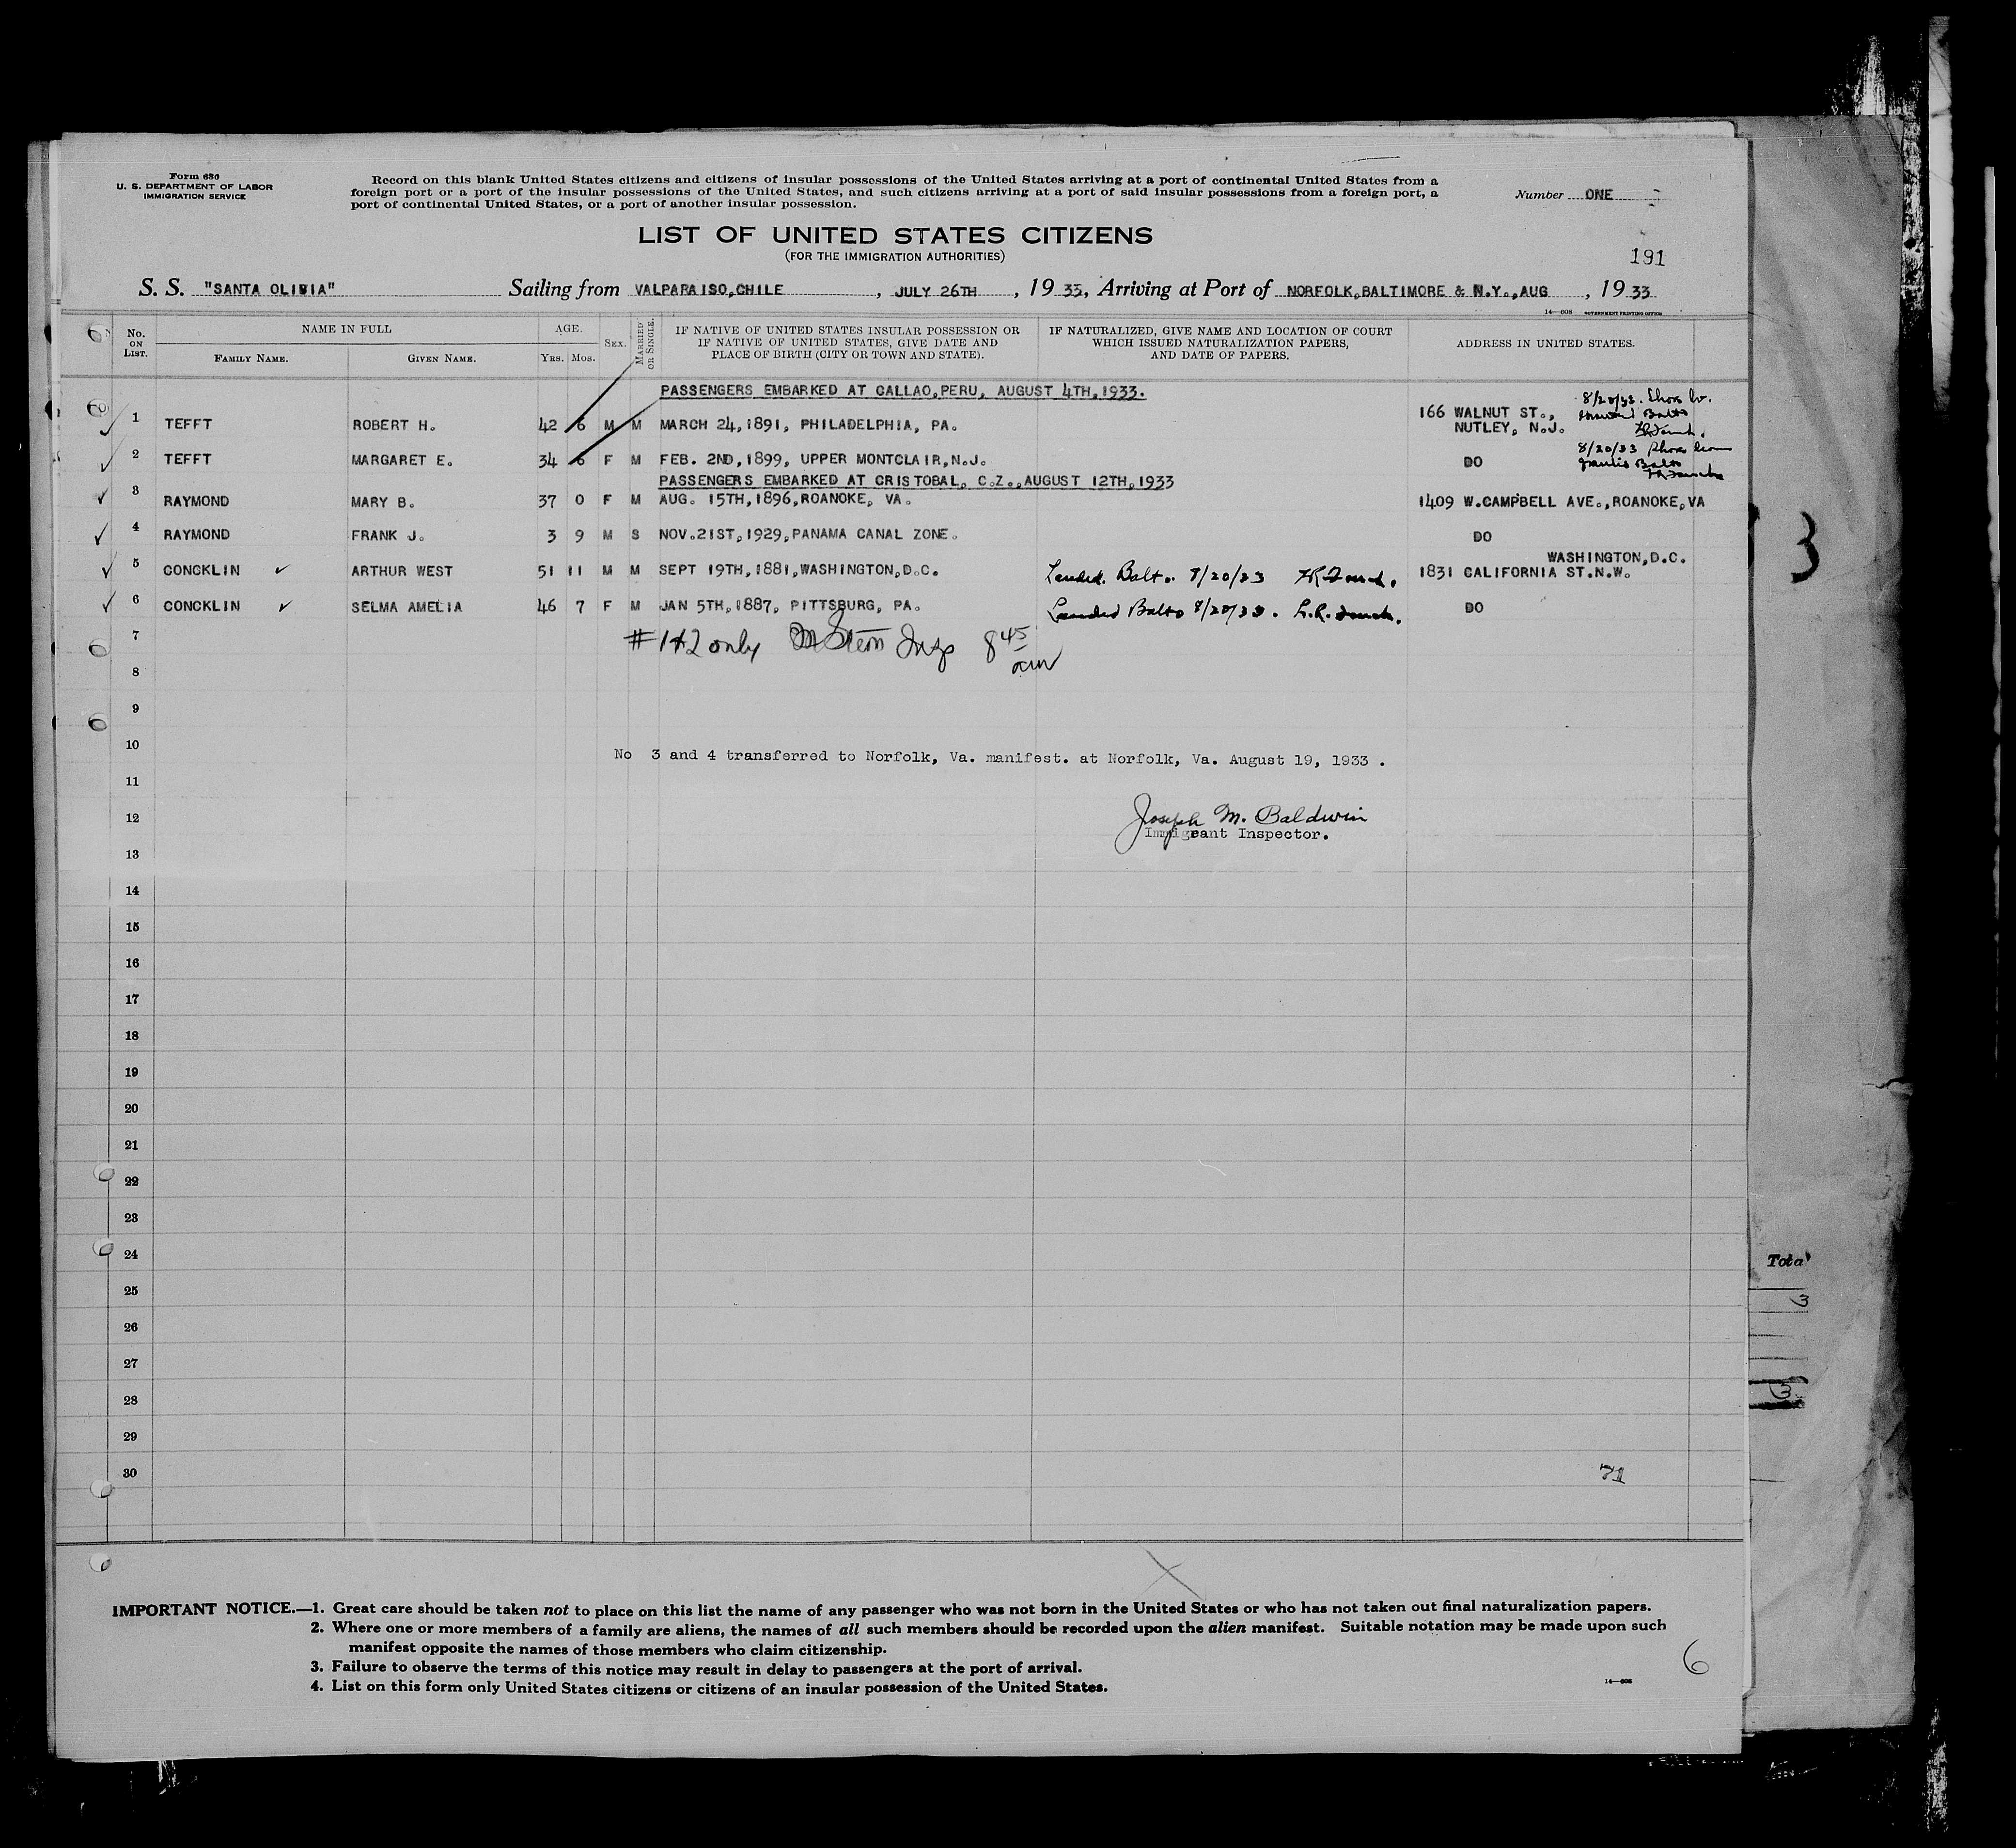 Form 630
U. S. DEPARTMENT OF LABOR
IMMIGRATION SERVICE
Record on this blank United States citizens and citizens of insular possessions of the United States arriving at a port of continental United States from a
foreign port or a port of the insular possessions of the United States, and such citizens arriving at a port of said insular possessions from a foreign port, a
port of continental United States, or a port of another insular possession.
Number ONE
LIST OF UNITED STATES CITIZENS
(FOR THE IMMIGRATION AUTHORITIES)
191
S. S. "SANTA OLIBIA" Sailing from VALPARAISO,CHILE , JULY 26TH , 19 33, Arriving at Port of NORFOLK,BALTIMORE & N.Y.,AUG , 19 33
14—608 GOVERNMENT PRINTING OFFICE
No. ON LIST. NAME IN FULL AGE. SEX. MARRIED OR SINGLE. IF NATIVE OF UNITED STATES INSULAR POSSESSION OR IF NATIVE OF UNITED STATES, GIVE DATE AND PLACE OF BIRTH (CITY OR TOWN AND STATE). IF NATURALIZED, GIVE NAME AND LOCATION OF COURT WHICH ISSUED NATURALIZATION PAPERS, AND DATE OF PAPERS. ADDRESS IN UNITED STATES.
FAMILY NAME. GIVEN NAME. YRS. MOS.
PASSENGERS EMBARKED AT CALLAO,PERU, AUGUST 4TH,1933.
8/20/33.
1 TEFFT ROBERT H. 42 6 M M MARCH 24,1891, PHILADELPHIA, PA. 166 WALNUT ST., Balto
NUTLEY, N.J.
8/20/33
2 TEFFT MARGARET E. 34 6 F M FEB. 2ND,1899, UPPER MONTCLAIR,N.J. DO Balto
PASSENGERS EMBARKED AT CRISTOBAL, C.Z.,AUGUST 12TH,1933
3 RAYMOND MARY B. 37 0 F M AUG. 15TH,1896,ROANOKE, VA. 1409 W.CAMPBELL AVE.,ROANOKE,VA
4 RAYMOND FRANK J. 3 9 M S NOV.21ST,1929,PANAMA CANAL ZONE. DO
WASHINGTON,D.C.
5 CONCKLIN ✓ ARTHUR WEST 51 11 M M SEPT 19TH,1881,WASHINGTON,D.C. Landed. Balto. 8/20/33 1831 CALIFORNIA ST.N.W.
6 CONCKLIN ✓ SELMA AMELIA 46 7 F M JAN 5TH,1887, PITTSBURG, PA. Landed Balto 8/20/33. DO
7 #1+2 only Insp 8 45
am
8
9
10 No 3 and 4 transferred to Norfolk, Va. manifest. at Norfolk, Va. August 19, 1933 .
11
12 Joseph M. Baldwin
Immigrant Inspector.
13
14
15
16
17
18
19
20
21
22
23
24
25
26
27
28
29
30 71
3
Tota
3
3
IMPORTANT NOTICE.—1. Great care should be taken not to place on this list the name of any passenger who was not born in the United States or who has not taken out final naturalization papers.
2. Where one or more members of a family are aliens, the names of all such members should be recorded upon the alien manifest. Suitable notation may be made upon such
manifest opposite the names of those members who claim citizenship.
3. Failure to observe the terms of this notice may result in delay to passengers at the port of arrival.
4. List on this form only United States citizens or citizens of an insular possession of the United States.
6
14—608